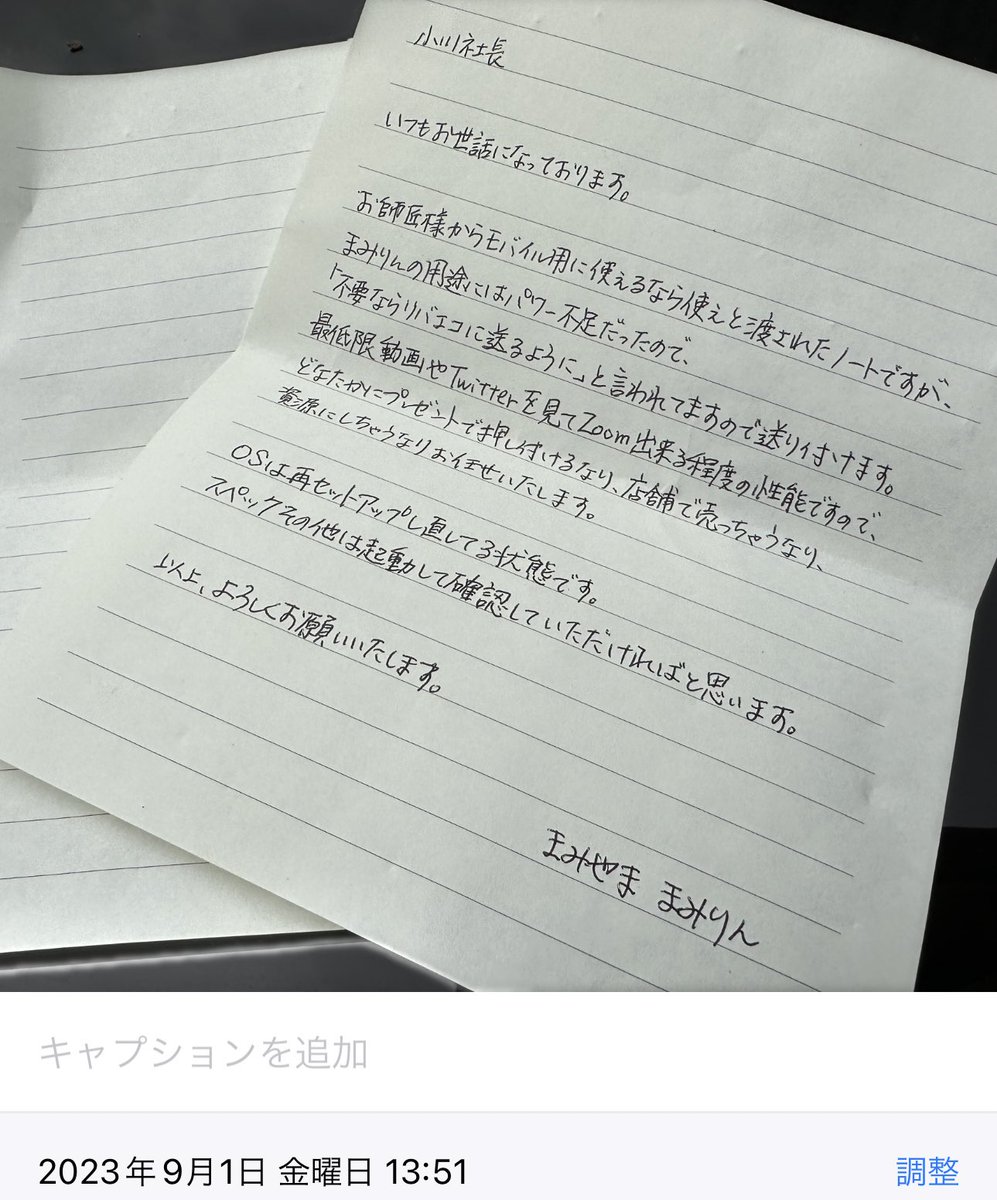 小川社長
いつもお世話になっております。
お師匠様からモバイル用に使えるなら使えと渡されたノートですが、
まみりんの用途にはパワー不足だったので、
「不要ならリバエコに送るように」と言われてますので送り付けます。
最低限動画やTwitterを見てZoom出来る程度の性能ですので、
どなたかにプレゼントで押し付けるなり、店舗で売っちゃうなり、
資源にしちゃうなりお任せいたします。
OSは再セットアップし直してる状態です。
スペックその他は起動して確認していただければと思います。
以上、よろしくお願いいたします。
まみやま まみりん
キャプションを追加
2023年9月1日 金曜日 13:51
調整